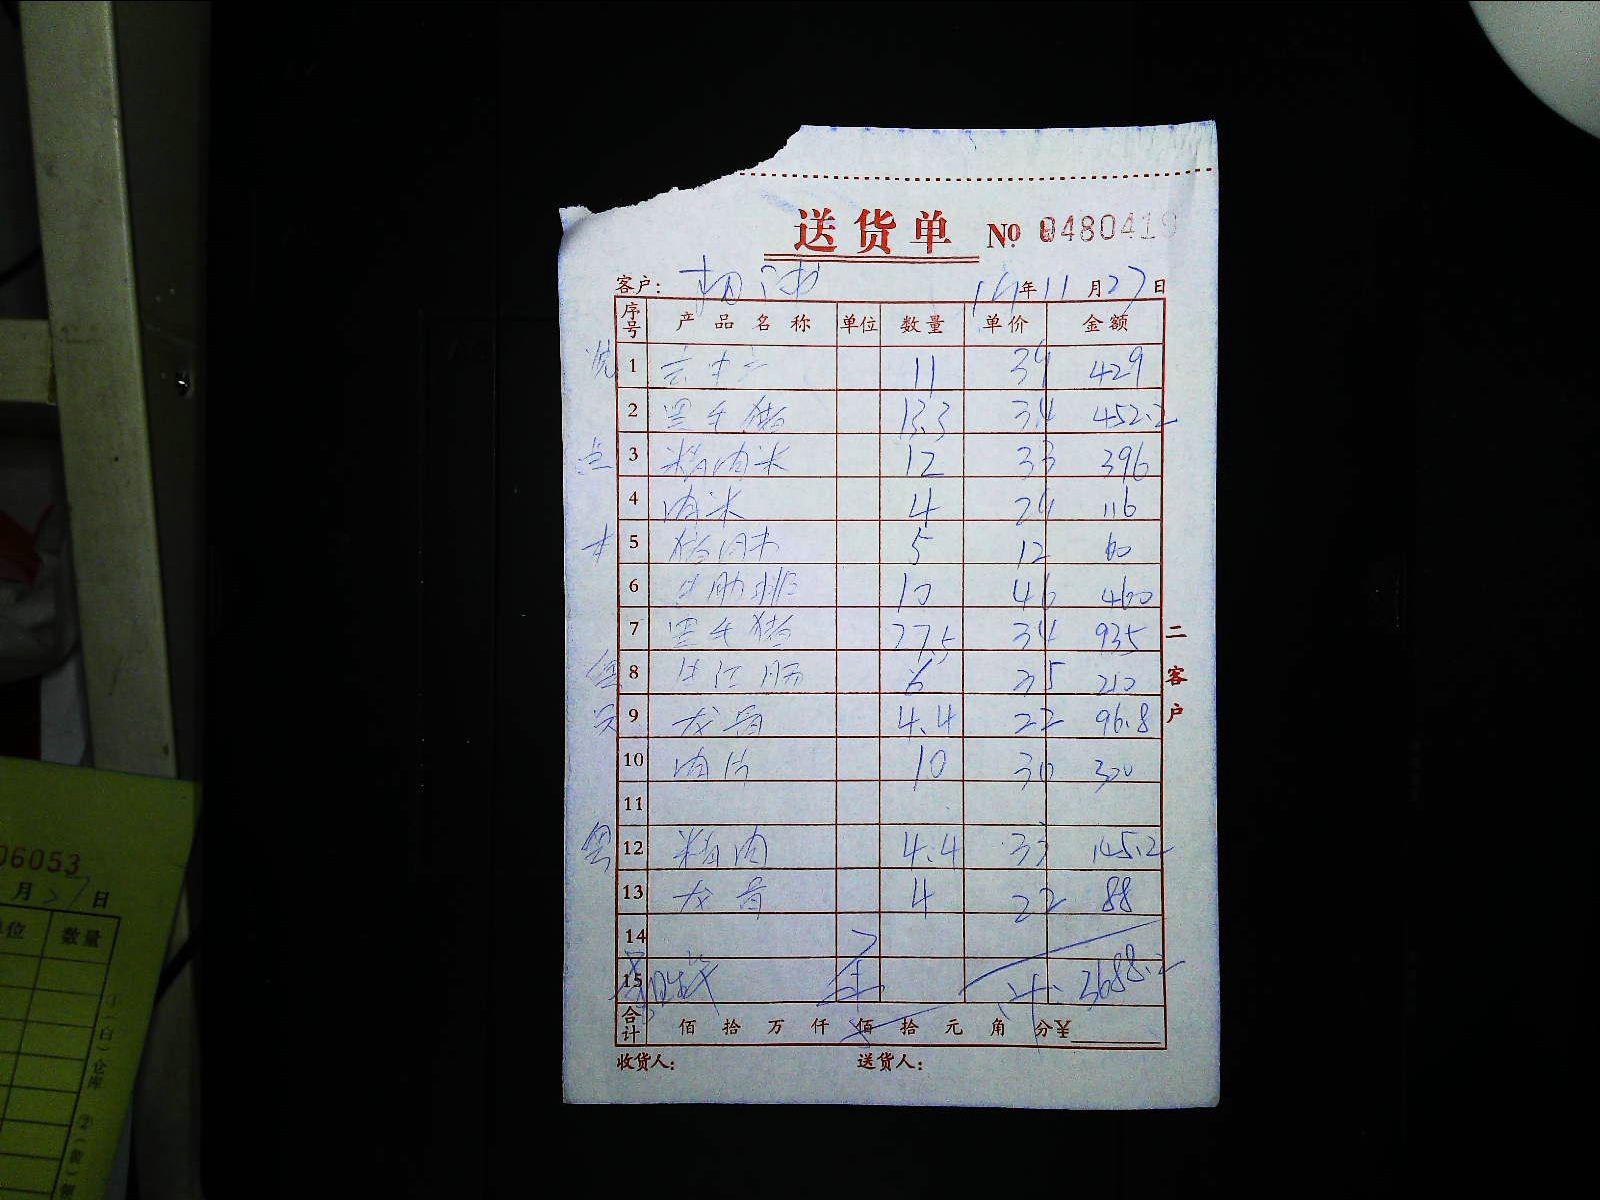 送货单 № 0480419
客户: 年11月27日
序号 产品名称 单位 数量 单价 金额
1 11 39 429
2 黑毛猪 13.3 34 452.2
点 3 精肉米 12 33 396
4 肉米 4 29 116
5 5 12 60
6 肋排 10 46 460
7 黑毛猪 27.5 34 935
8 6 35 210
9 龙骨 4.4 22 96.8
10 肉片 10 30 300
11
12 精肉 4.4 33 145.2
13 龙骨 4 22 88
14
15 计: 3688.2
合计 佰 拾 万 仟 佰 拾 元 角 分¥
收货人: 送货人:
二客户
06053
月27日
单位 数量
①(白)仓库 ②(黄)